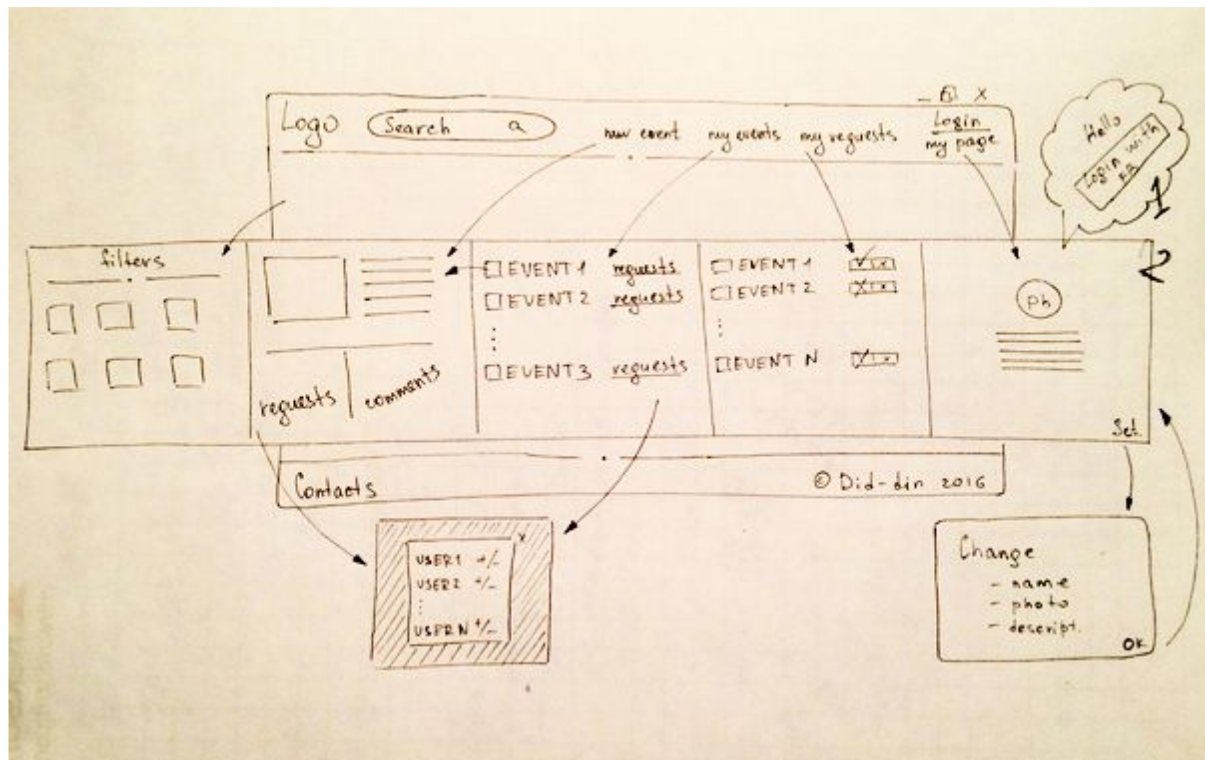 Logo
Search
new event
my events
my requests
Login
my page
Hello
Login with
1
2
filters
requests
comments
EVENT 1 requests
EVENT 2 requests
EVENT 3 requests
EVENT 1
EVENT 2
EVENT N
Ph
Set.
Contacts
© Did-din 2016
x
USER1 +/-
USER2 +/-
USERN +/-
Change
- name
- photo
- descript.
OK